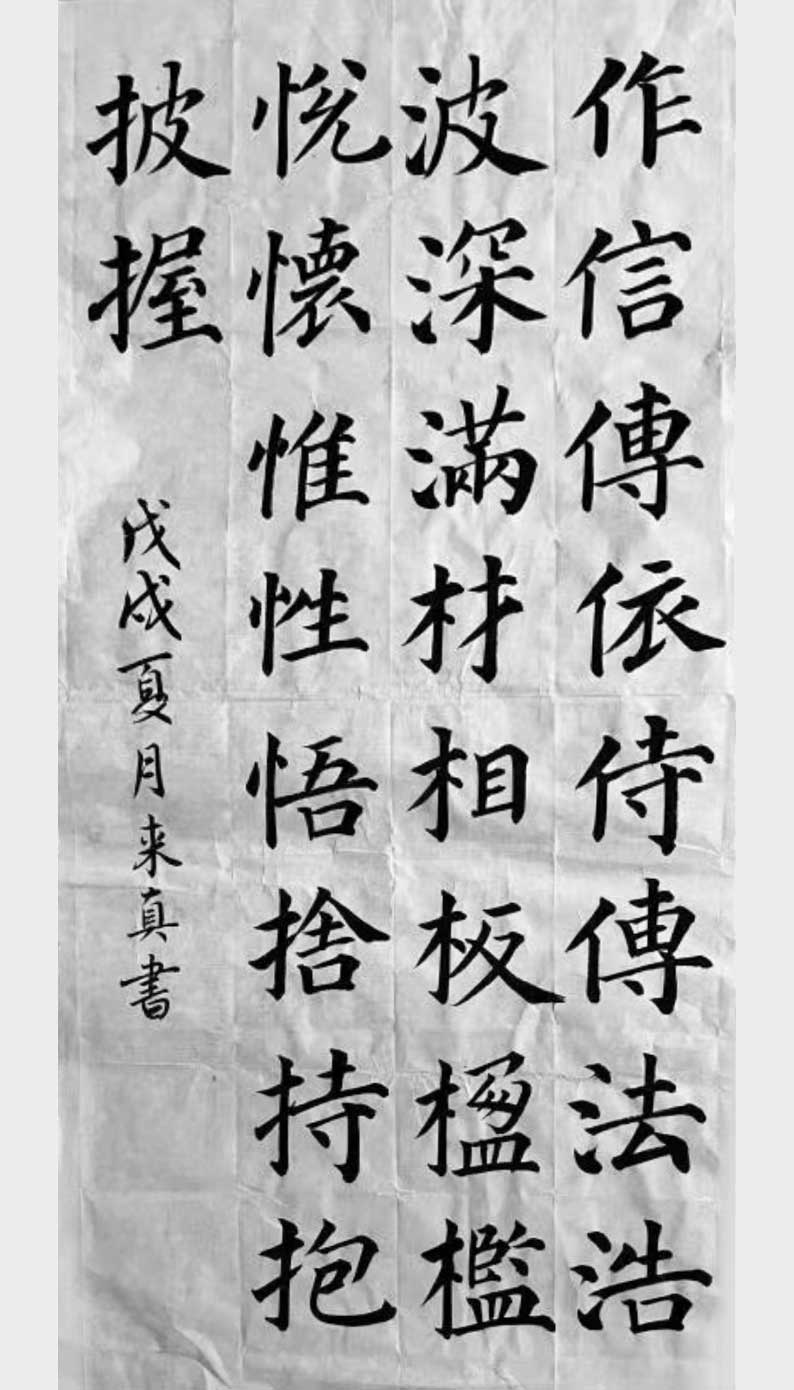 作信傳依侍傳法浩
波深滿材相板楹檻
悅懷惟性悟捨持抱
披握
戊戌夏月来真書